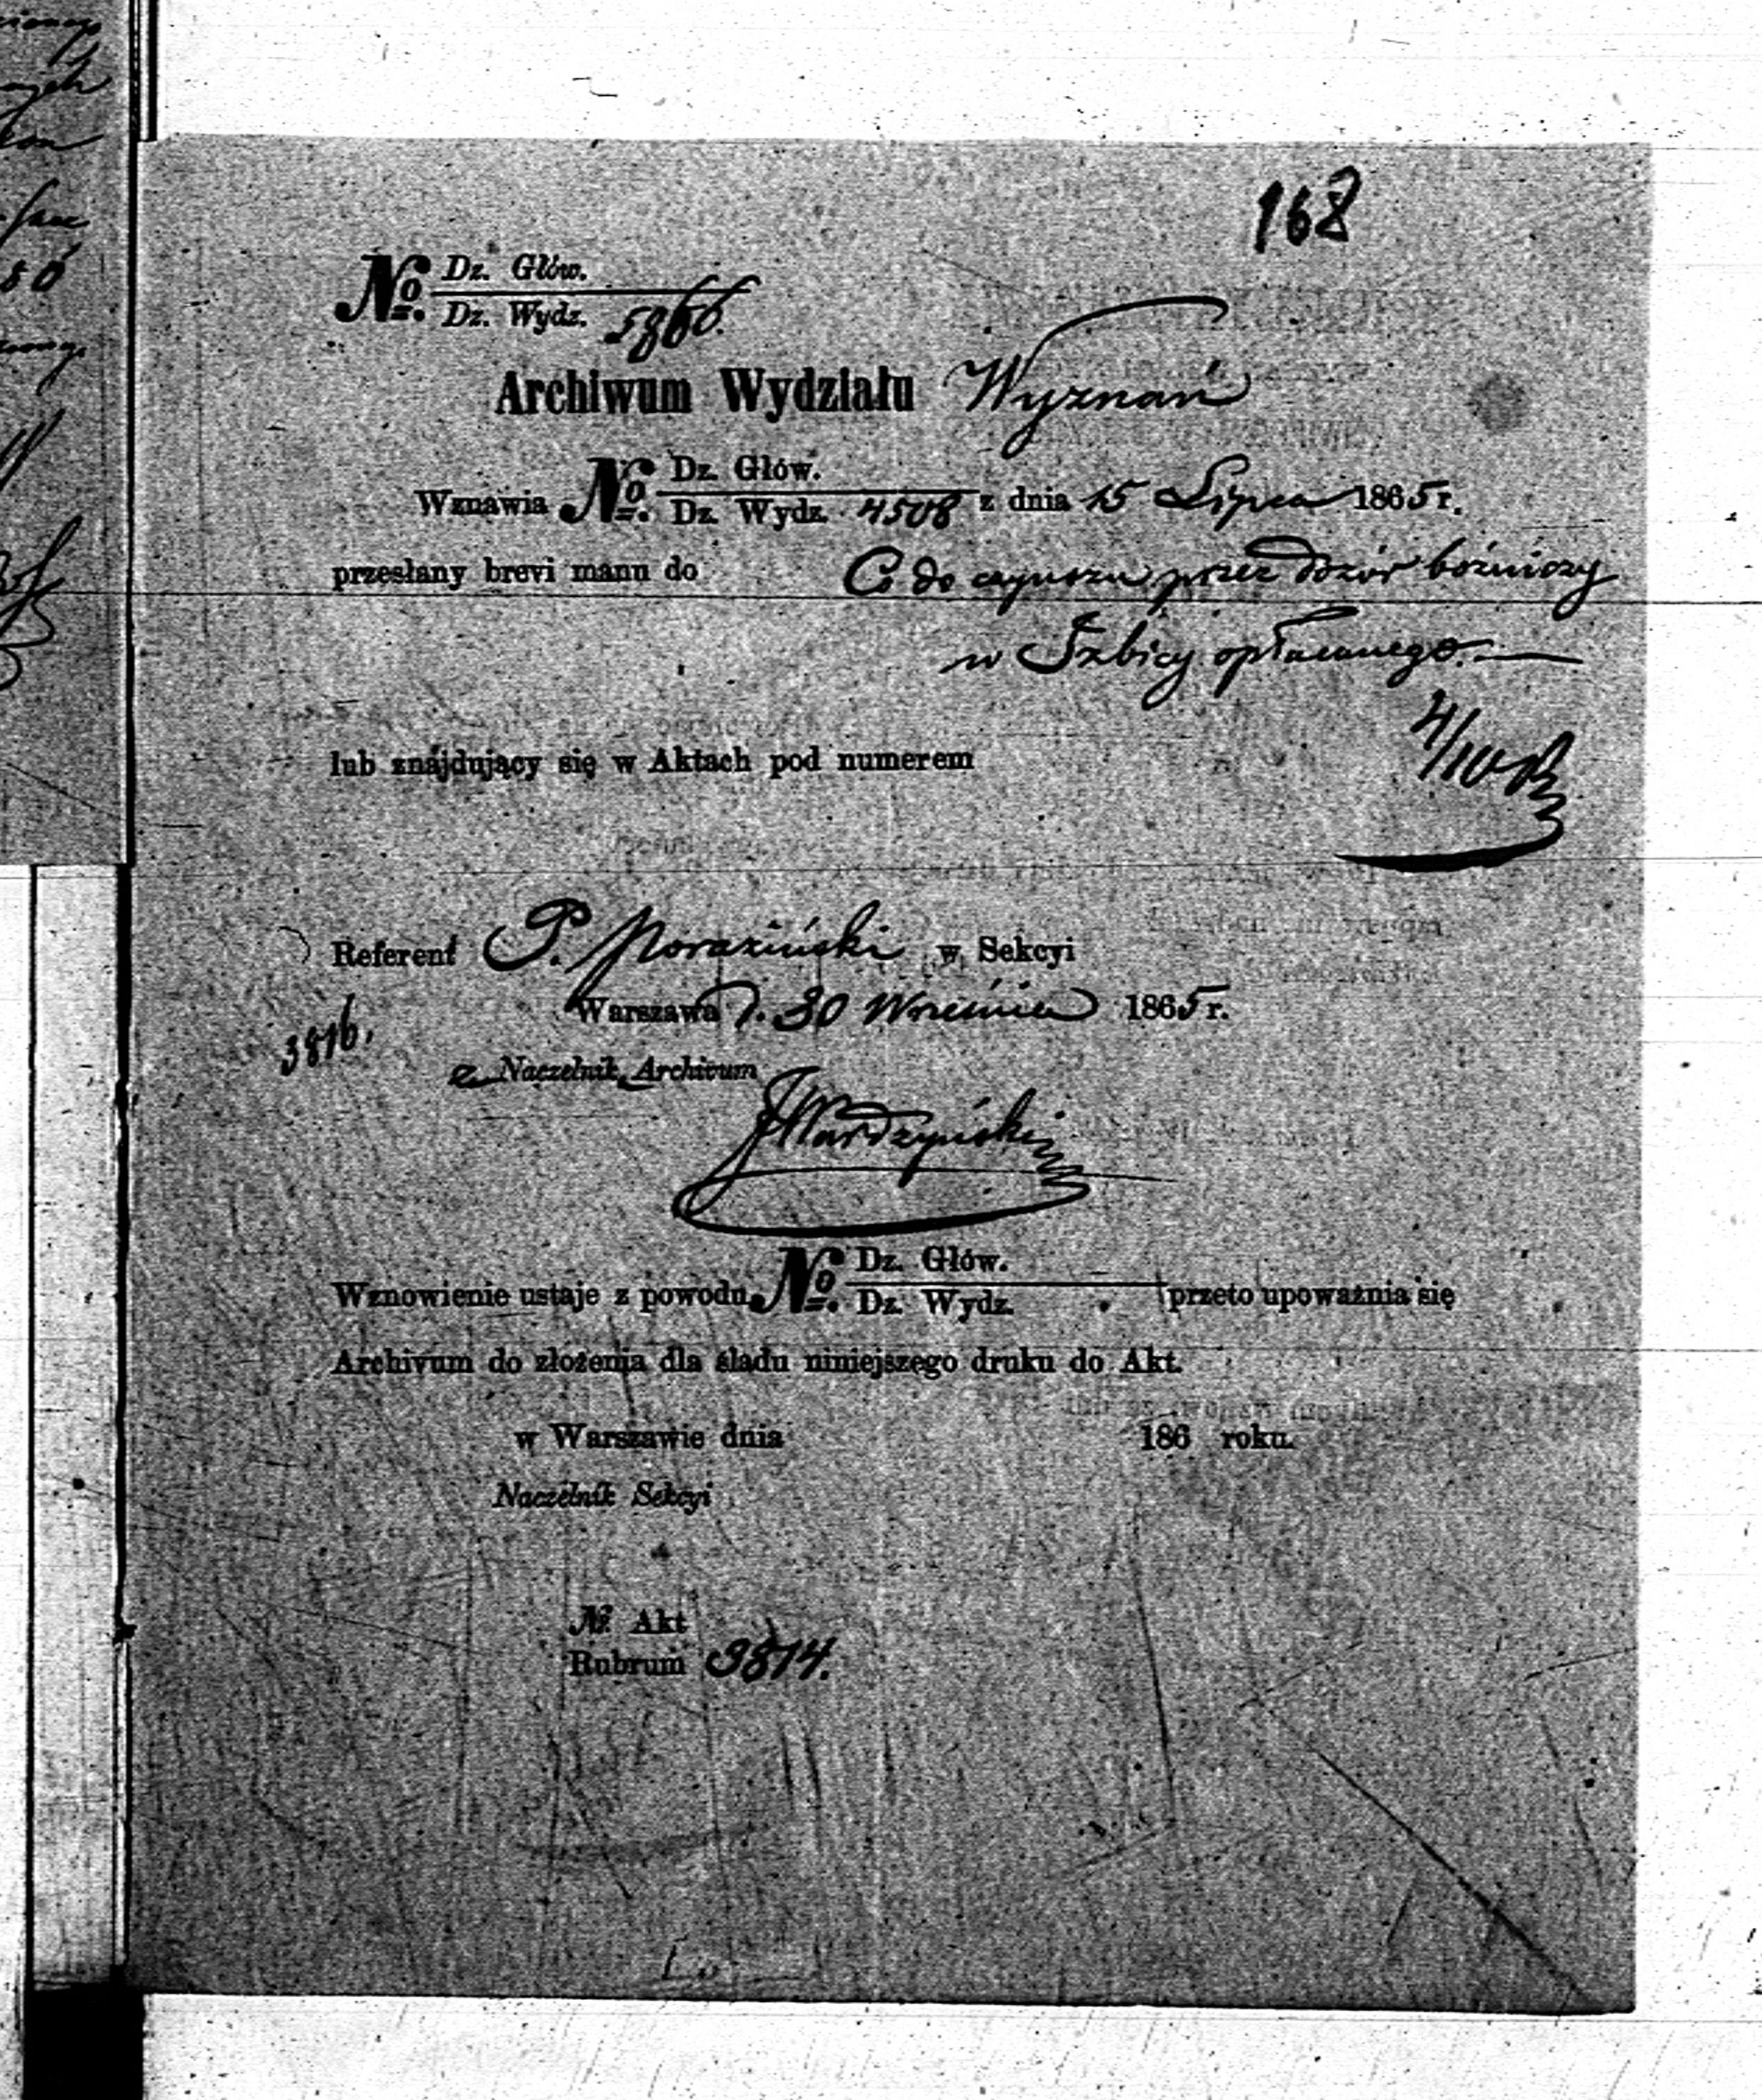 168
№ Dz. Głów.
Dz. Wydz. 5866.
Archiwum Wydziału Wyznań
Wznawia № Dz. Głów.
Dz. Wydz. 4508 z dnia 15 Lipca 1865 r.
przesłany brevi manu do Co do czynszu przez dozór bóżniczy
w Izbicy opłacanego.—
4/10
lub znajdujący się w Aktach pod numerem
Referent P. Moraziński w Sekcyi
Warszawa d. 30 Wrześnie 1865 r.
3816.
z Naczelnik Archivum
JMardzyński
Wznowienie ustaje z powodu № Dz. Głów.
Dz. Wydz. przeto upoważnia się
Archivum do złożenia dla śladu niniejszego druku do Akt.
w Warszawie dnia 186 roku.
Naczelnik Sekcyi
№ Akt
Rubrum 3814.